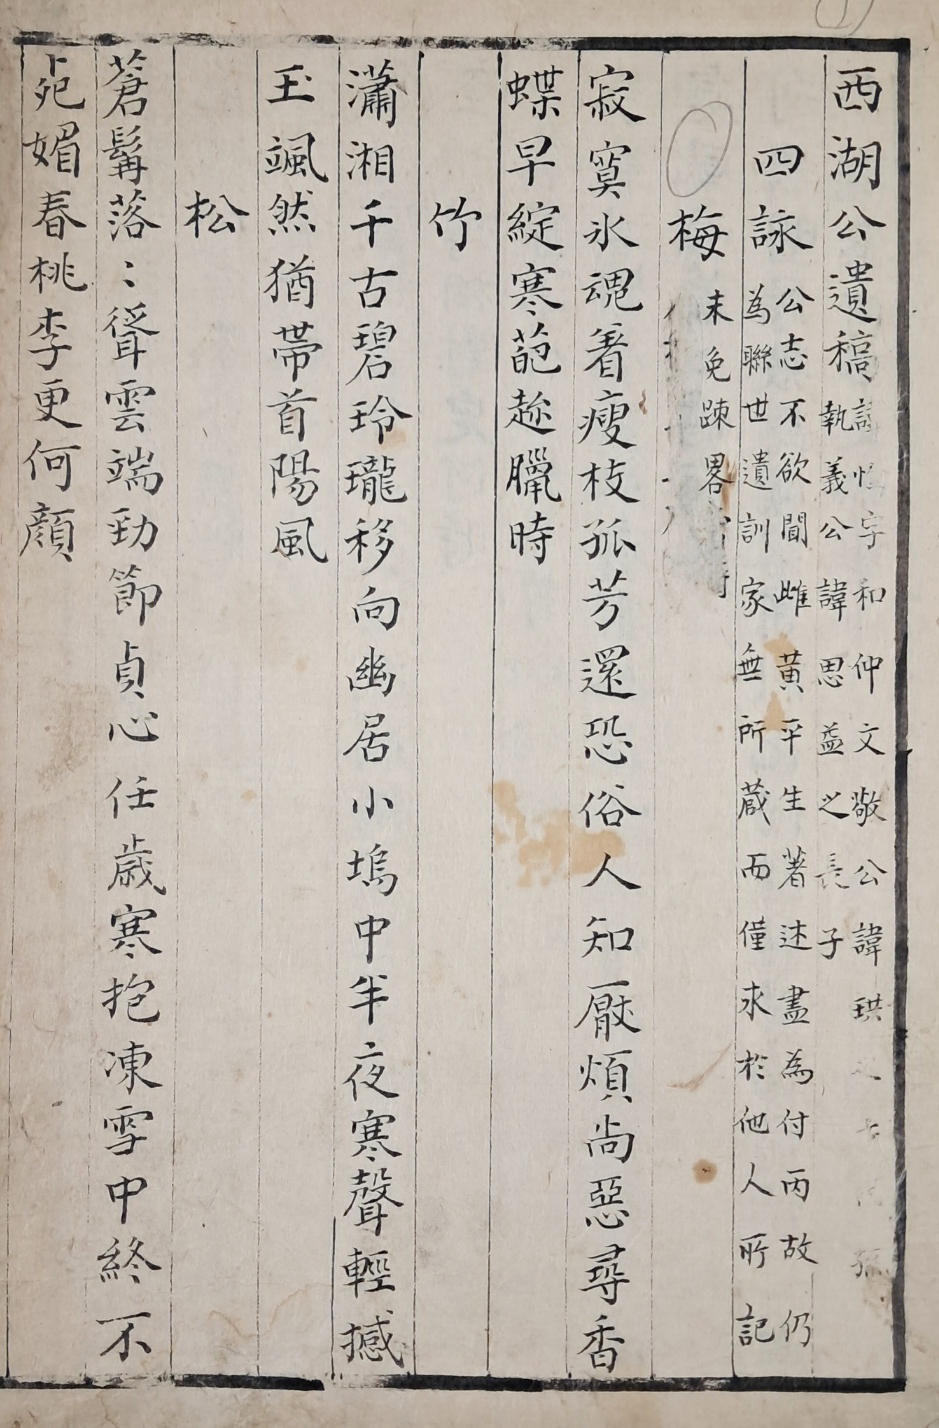 西湖公遺稿
諱 字和仲文敬公諱珙
執義公諱思益之長子
四詠
公志不欲聞雌黃平生著述盡為付丙故仍
為聯世遺訓家無所蔵而僅求於他人所記
梅
未免踈畧
寂寞氷魂着瘦枝孤芳還恐俗人知厭煩尚惡尋香
蝶早綻寒葩趂臘時
竹
瀟湘千古碧玲瓏移向幽居小塢中半夜寒聲輕撼
玉颯然猶帶首陽風
松
蒼髯落〻聳雲端勁節貞心任歲寒抱凍雪中終不
死媚春桃李更何顔